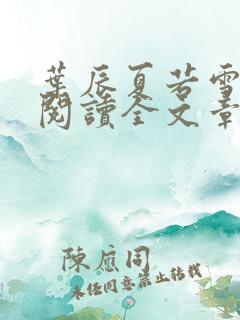 葉辰夏若雪
閱讀全文章
陳應同
未經同意禁止轉載